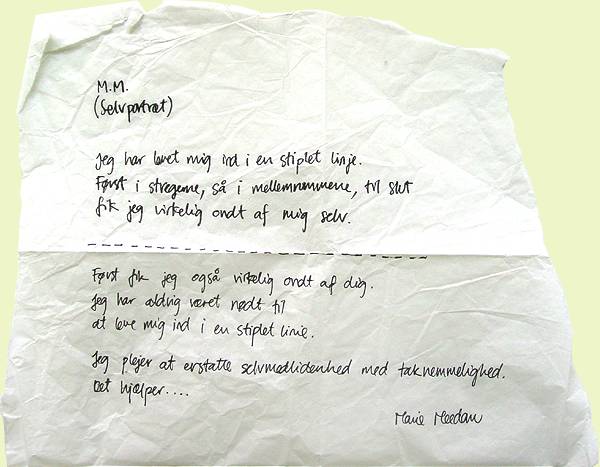 M.M.
(Selvportræt)
Jeg har levet mig ind i en stiplet linje.
Først i stregerne, så i mellemrummene, til slut
fik jeg virkelig ondt af mig selv.
Først fik jeg også virkelig ondt af dig.
Jeg har aldrig været nødt til
at leve mig ind i en stiplet linie.
Jeg plejer at erstatte selvmedlidenhed med taknemmelighed.
Det hjælper....
Marie